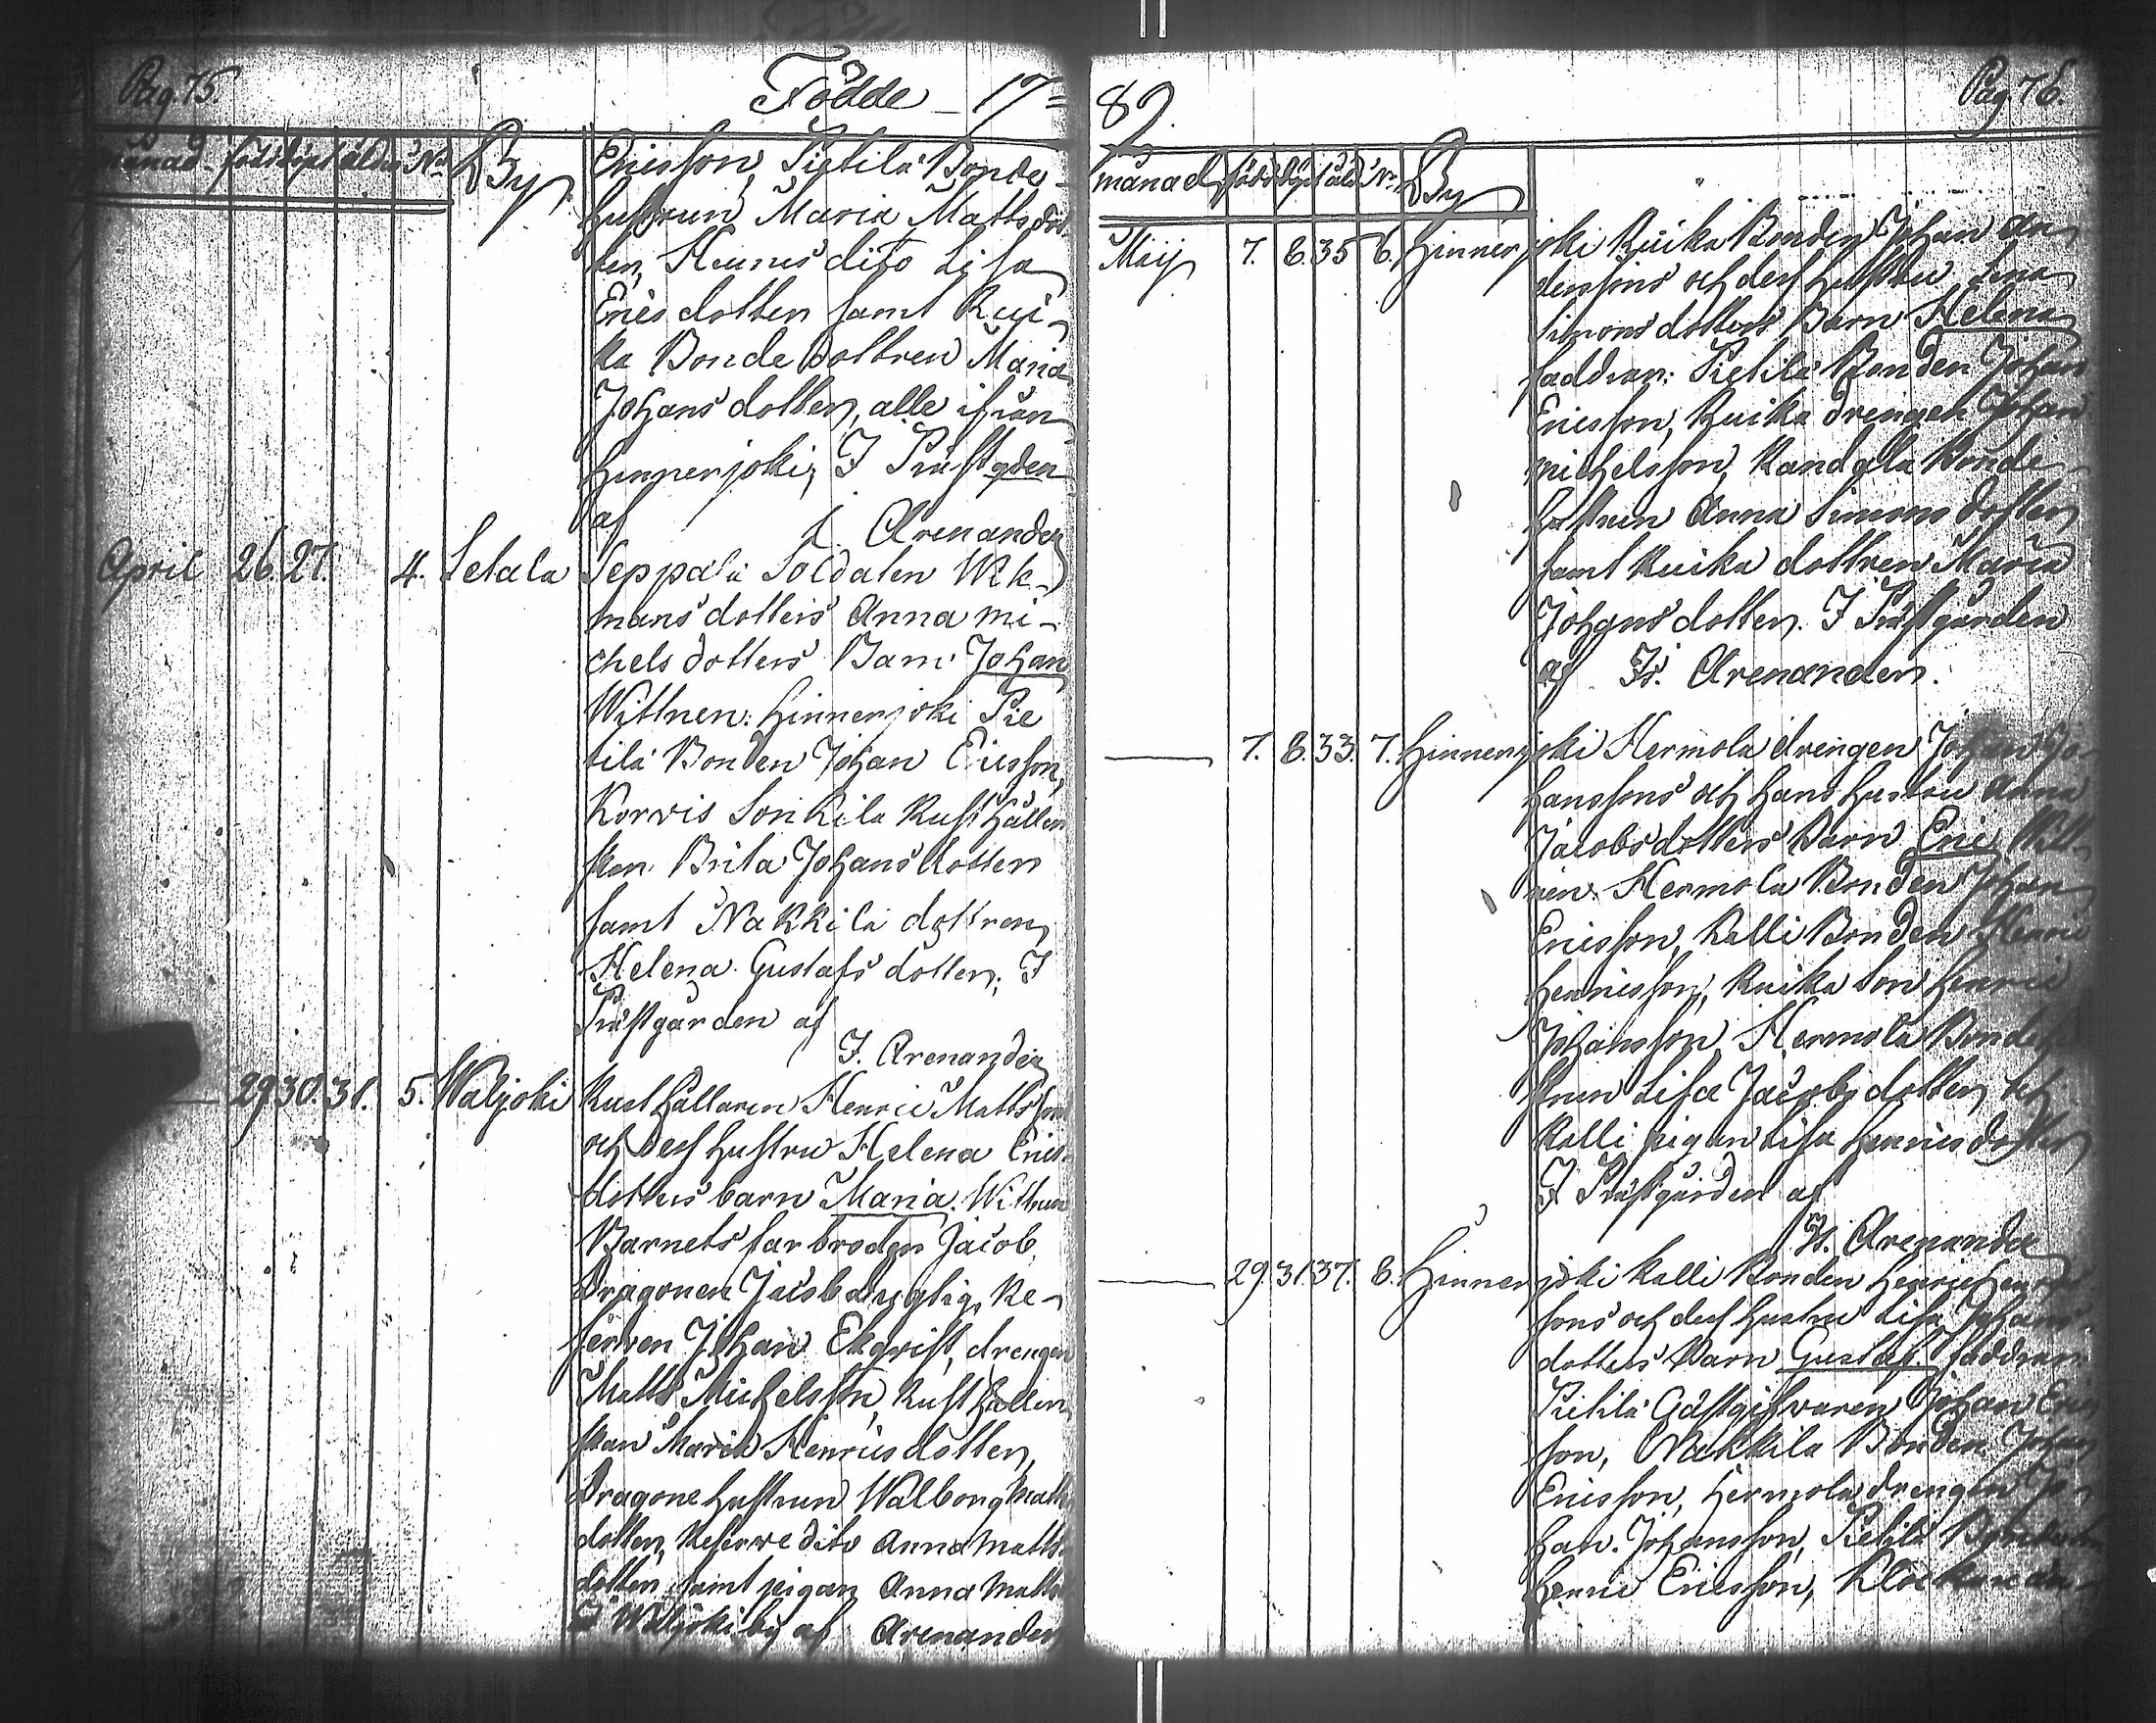 Pag. 75.
Födde 17
månad född döpt ålder No By
Ericsson, Pietilä Bonde
hustrun Maria Mattsdot
ter, Heunis dito Lisa
Erics dotter samt Rui
ka Bonde dottren Maria
Johans dotter, alle ifrån
Hinnerjoki, I Prästgden
af I. Arenander
April 26. 27. 4. Setala Seppälä Soldaten Wik
mans dotters Anna Mi-
chels dotters Barn Johan
Wittnen: Hinnerjoki Pie
tilä Bonden Johan Ericsson,
Korvis Sonkila Rusthållers
kan Brita Johans dotter
samt Nakkila dottren
Helena Gustafs dotter; I
Prästgården af
I. Arenander
29 30. 31. 5. Waljoki Rusthållaren Henric Mattsson
och dess hustru Helena Erics
dotters barn Maria. Wittnen
Barnets farbroder Jacob,
Dragonen Jacob duglig, Re-
serven Johan Ekqvist, drengen
Matts Michelsson, Rusthållers
kan Maria Henricsdotter,
Dragone hustrun Walborg Matts
dotter, Reserve dito Anna Matts
dotter samt pigan Anna Matts
I Waljoki by af Arenander
89.
Pag 76.
månad född döpt åld No By
Maij 7. 8. 35 6. Hinnerjoki Ruika Bonden Johan An
derssons och dess hustru Lena
Simons dotters Barn Helena
faddrar: Pietilä Bonden Johan
Ericsson, Ruika drengen Johan
Michelsson, Kandola Bonde
hustrun Anna Simons dotter
samt Ruika dottren Maria
Johans dotter. I Prästgården
af Is. Arenander.
7. 8. 33. 7. Hinnerjoki Hermola drengen Johan Jo
hanssons och hans hustru Anna
Jacobsdotters Barn Eric. Witt-
nen: Hermola Bonden Johan
Ericsson, Kalli Bonden Henric
Henricsson, Ruika Son Henric
Johansson, Hermola Bondehu
strun Lisa Jacobs dotter och
Kalli pigan Lisa Henricsdotter
I Prästgården af
Is. Arenander
29. 31. 37. 8. Hinnerjoki Kalli Bonden Henric Henrics
sons och dess hustru Lisa Johans
dotters Barn Gustaf. faddrar:
Pietilä Gästgifvaren Johan Erics
son, Nakkila Bonden Johan
Ericsson, Hermola drengen Jo
han Johansson, Pietilä
Henric Ericsson,